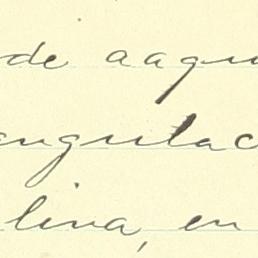 de aagu
angulac
lina, en